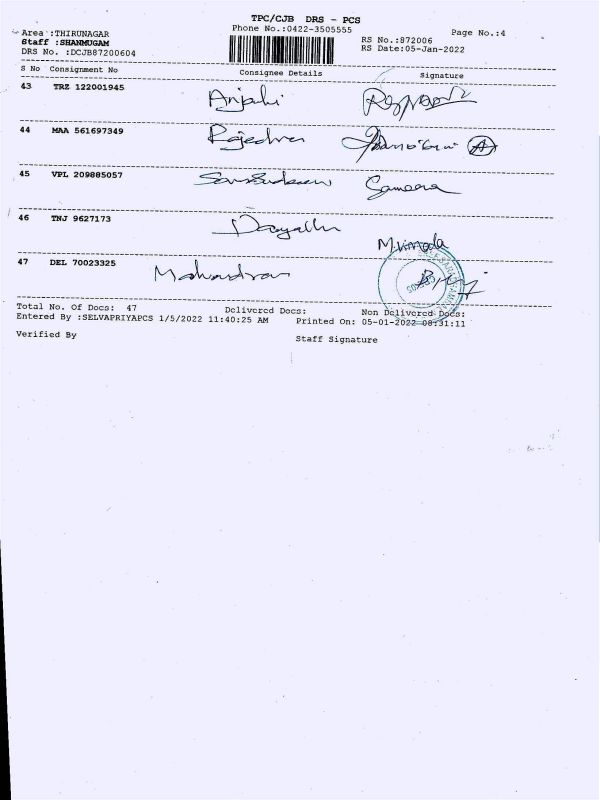 TPC/CJB DRS - PCS
Phone No.:0422-3505555
Page No.:4
Area :THIRUNAGAR
Staff :SHANMUGAM
DRS No. :DCJB87200604
RS No.:872006
RS Date:05-Jan-2022
S No Consignment No Consignee Details Signature
43 TRZ 122001945 Anjali
44 MAA 561697349 Rajedran A
45 VPL 209885057
46 TNJ 9627173
47 DEL 70023325
Total No. Of Docs: 47 Delivered Docs: Non Delivered Docs:
Entered By :SELVAPRIYAPCS 1/5/2022 11:40:25 AM Printed On: 05-01-2022 08:31:11
Verified By Staff Signature